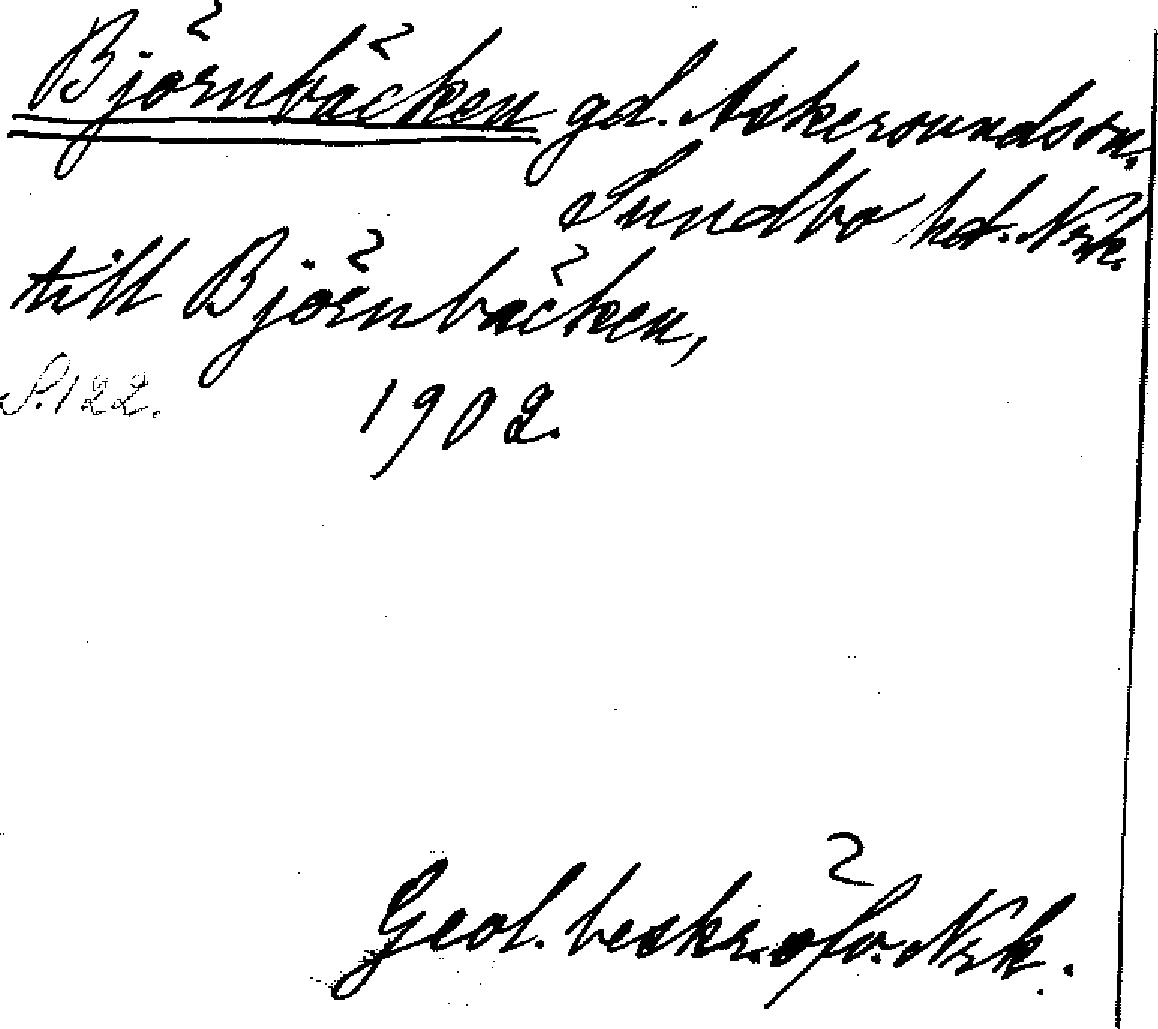 Björnbäcken gd. Askersundssn.
Sundbo hd. Nrk.
till Björnbäcken,
S. 122.
1902.
Geol. beskr. öfv. Nrk.